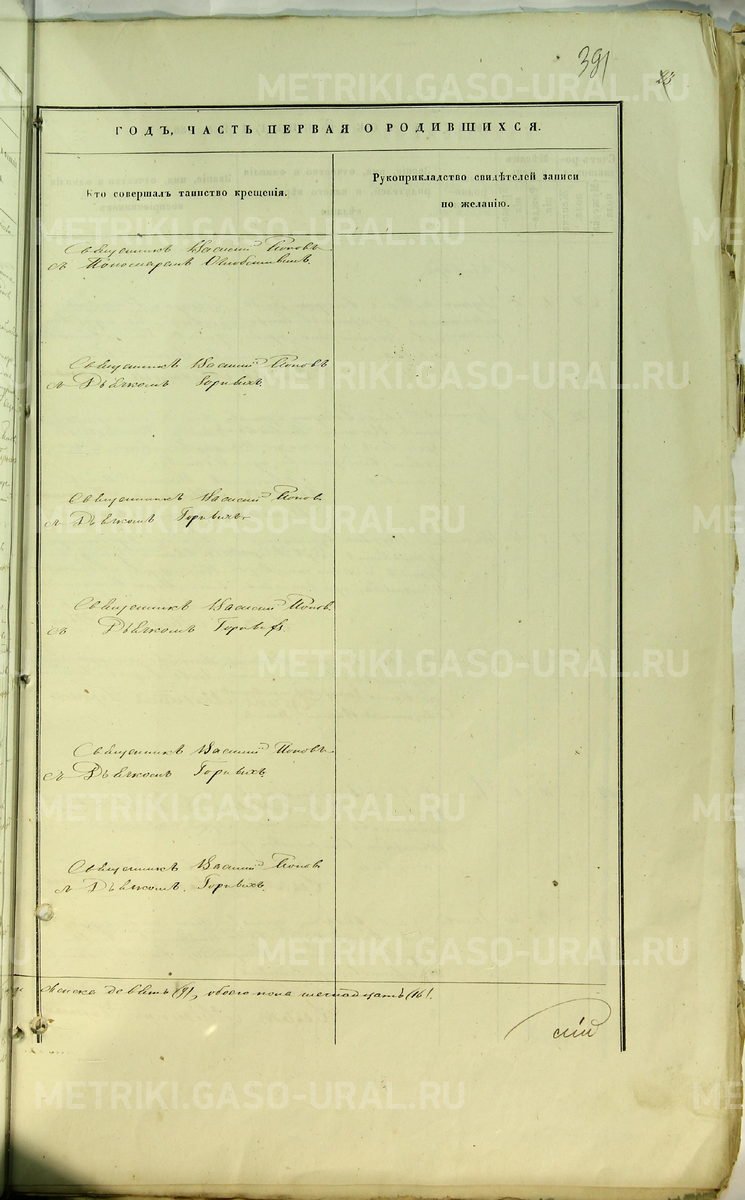 391
23
METRIKI.GASO-URAL.RU
ГОДЪ, ЧАСТЬ ПЕРВАЯ О РОДИВШИХСЯ.
Кто совершалъ таинство крещенія.
Рукоприкладство свидѣтелей записи
по желанію.
Священникъ Василий Поповъ
съ Пономаремъ
Священникъ Василий Поповъ
съ Дьячкомъ
Священникъ Василий Поповъ
съ Дьячкомъ
Священникъ Василий Поповъ
съ Дьячкомъ
Священникъ Василий Поповъ
съ Дьячкомъ
Священникъ Василий Поповъ
съ Дьячкомъ
женска девять (9), обоего пола (16).